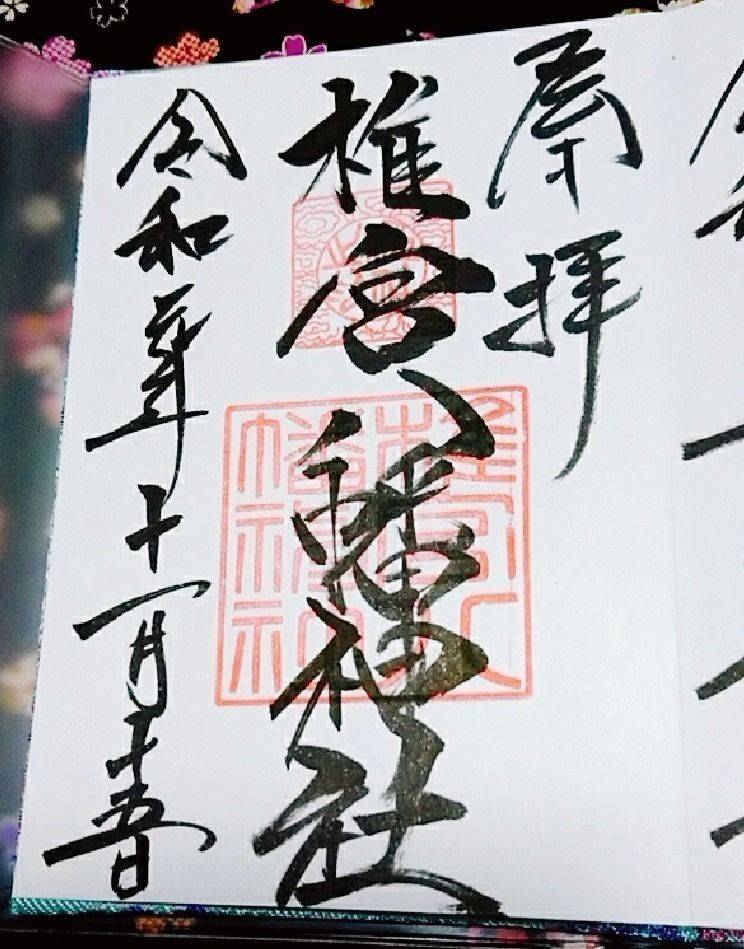 奉拝
椎宮八幡神社
椎宮八
幡神社
令和元年十一月十五日